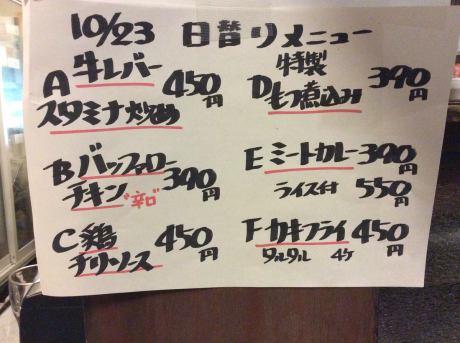 10/23 日替りメニュー
A 牛レバー
スタミナ炒め 450円
B バッファロー
チキン "辛口" 390円
C 鶏
チリソース 450円
特製
D もつ煮込み 390円
E ミートカレー 390円
ライス付 550円
F カキフライ 450円
タルタル 4ケ